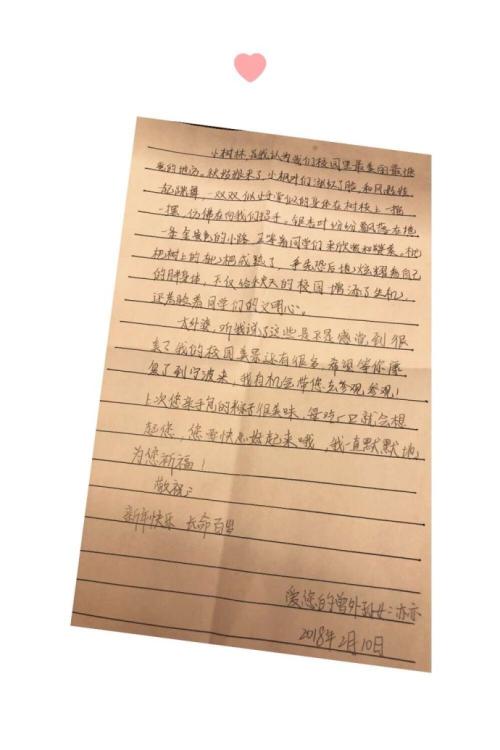 小树林,是我认为我们校园里最美的最迷
人的地方。秋姑娘来了,小枫叶们涨红了脸,和风姑娘一
起跳舞,一双双似小手掌似的身体在树枝上一摇一
摆,仿佛在向我们招手。银杏叶纷纷飘落在地,
一条金黄色的小路,正等着同学们来欣赏和踩素。枇
杷树上的枇杷成熟了,争先恐后地炫耀着自己
的胖身体,不仅给秋天的校园增添了生机,
还考验着同学们的文明心。
太外婆,听我说了这些是不是感觉到很
美了我的校园美景还有很多,希望等你康
复了到宁波来,我有机会带您去参观参观!
上次您亲手包的粽子很美味,每吃一只就会想
起您,您要快点好起来哦,我一直默默地
为您祈福!
敬祝:
新年快乐 长命百岁
爱您的曾外孙女:亦亦
2018年2月10日